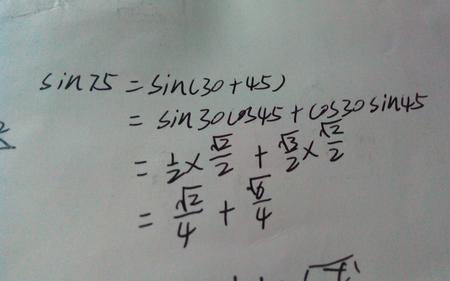 sin75 = sin(30+45)
= sin30cos45 + cos30sin45
= 1/2 × √2/2 + √3/2 × √2/2
= √2/4 + √6/4